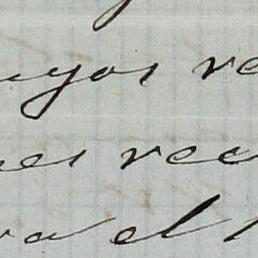 uyos re
nes rec
va el